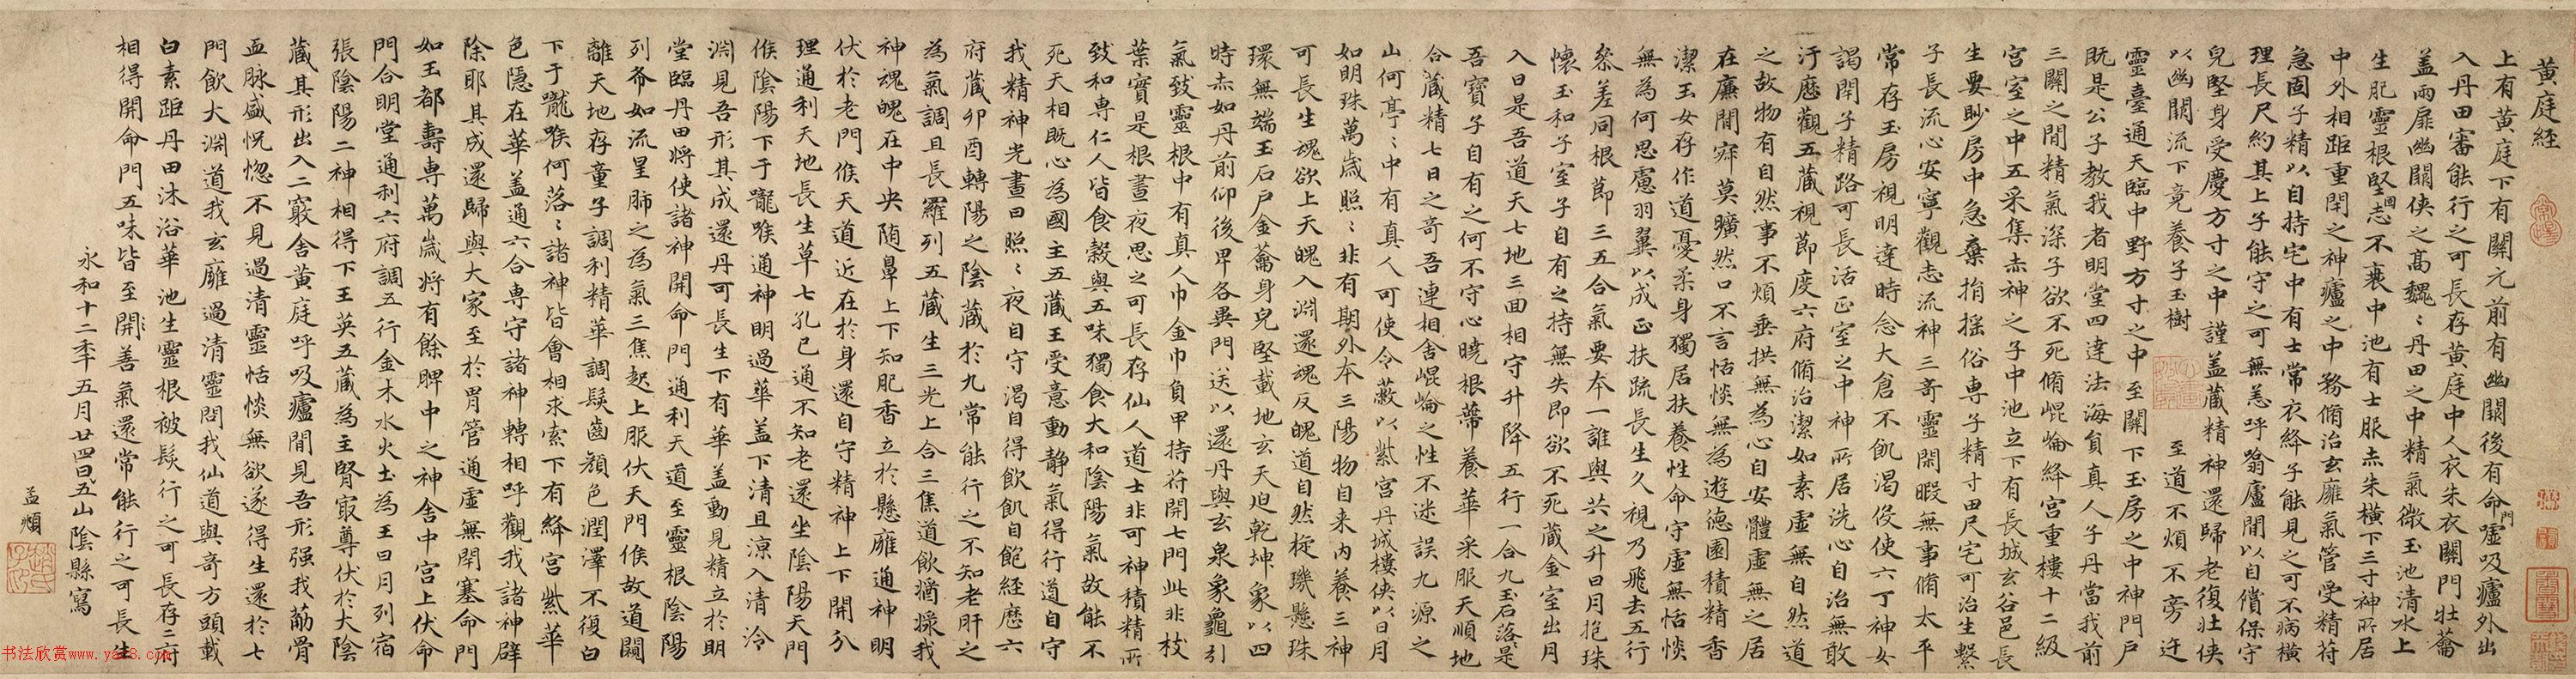 黃庭経
上有黃庭下有關元前有幽關後有命門噓吸廬外出
入丹田審能行之可長存黃庭中人衣朱衣關門壮蘥
盖兩扉幽關俠之高巍〻丹田之中精氣微玉池清水上
生肥靈根堅固志不衰中池有士服赤朱橫下三寸神所居
中外相距重閇之神廬之中務脩治玄廱氣管受精符
急固子精以自持宅中有士常衣絳子能見之可不病橫
理長尺約其上子能守之可無恙呼噏廬間以自償保守
皃堅身受慶方寸之中謹盖藏精神還歸老復壮俠
以幽關流下竟養子玉樹 至道不煩不旁迕
靈臺通天臨中野方寸之中至關下玉房之中神門戶
既是公子教我者明堂四達法海負真人子丹當我前
三關之間精氣深子欲不死脩崐崘絳宮重樓十二級
宮室之中五采集赤神之子中池立下有長城玄谷邑長
生要眇房中急棄捐搖俗専子精寸田尺宅可治生繫
子長流心安寧觀志流神三奇靈閑暇無事脩太平
常存玉房視明達時念大倉不飢渴役使六丁神女
謁閇子精路可長活正室之中神所居洗心自治無敢
汙歷觀五藏視節度六府脩治潔如素虛無自然道
之故物有自然事不煩垂拱無為心自安體虛無之居
在廉間寂莫曠然口不言恬惔無為遊德園積精香
潔玉女存作道憂柔身獨居扶養性命守虛無恬惔
無為何思慮羽翼以成正扶疏長生久視乃飛去五行
叅差同根節三五合氣要本一誰與共之升日月抱珠
懷玉和子室子自有之持無失即欲不死藏金室出月
入日是吾道天七地三回相守升降五行一合九玉石落〻是
吾寶子自有之何不守心曉根蔕養華采服天順地
合藏精七日之奇吾連相舍崐崘之性不迷誤九源之
山何亭〻中有真人可使令蔽以紫宮丹城樓俠以日月
如明珠萬歲照〻非有期外本三陽物自来內養三神
可長生魂欲上天魄入淵還魂反魄道自然椗璣懸珠
環無端玉石戶金蘥身皃堅載地玄天迫乾坤象以四
時赤如丹前仰後卑各異門送以還丹與玄泉象龜引
氣致靈根中有真人巾金巾負甲持符開七門此非枝
葉實是根晝夜思之可長存仙人道士非可神積精所
致和専仁人皆食穀與五味獨食大和陰陽氣故能不
死天相既心為國主五藏王受意動静氣得行道自守
我精神光晝日照〻夜自守渴自得飲飢自飽経歷六
府藏卯酉轉陽之陰藏於九常能行之不知老肝之
為氣調且長羅列五藏生三光上合三焦道飲醬漿我
神魂魄在中央随鼻上下知肥香立於懸廱通神明
伏於老門候天道近在於身還自守精神上下開分
理通利天地長生草七孔已通不知老還坐陰陽天門
候陰陽下于嚨喉通神明過華盖下清且涼入清泠
淵見吾形其成還丹可長生下有華盖動見精立於明
堂臨丹田将使諸神開命門通利天道至靈根陰陽
列布如流星肺之為氣三焦起上服伏天門候故道闚
離天地存童子調利精華調髮齒顏色潤澤不復白
下于嚨喉何落〻諸神皆會相求索下有絳宮紫華
色隱在華盖通六合専守諸神轉相呼觀我諸神辟
除耶其成還歸與大家至於胃管通虛無閇塞命門
如玉都壽専萬歲将有餘脾中之神舍中宮上伏命
門合明堂通利六府調五行金木水火土為王日月列宿
張陰陽二神相得下玉英五藏為主腎㝡尊伏於大陰
藏其形出入二竅舍黃庭呼吸廬間見吾形强我筋骨
血脉盛怳惚不見過清靈恬惔無欲遂得生還於七
門飲大淵道我玄廱過清靈問我仙道與奇方頭載
白素距丹田沐浴華池生靈根被髮行之可長存二府
相得開命門五味皆至開善氣還常能行之可長生
永和十二年五月廿四日五山陰縣寫
孟頫
书法欣赏www.yac8.com